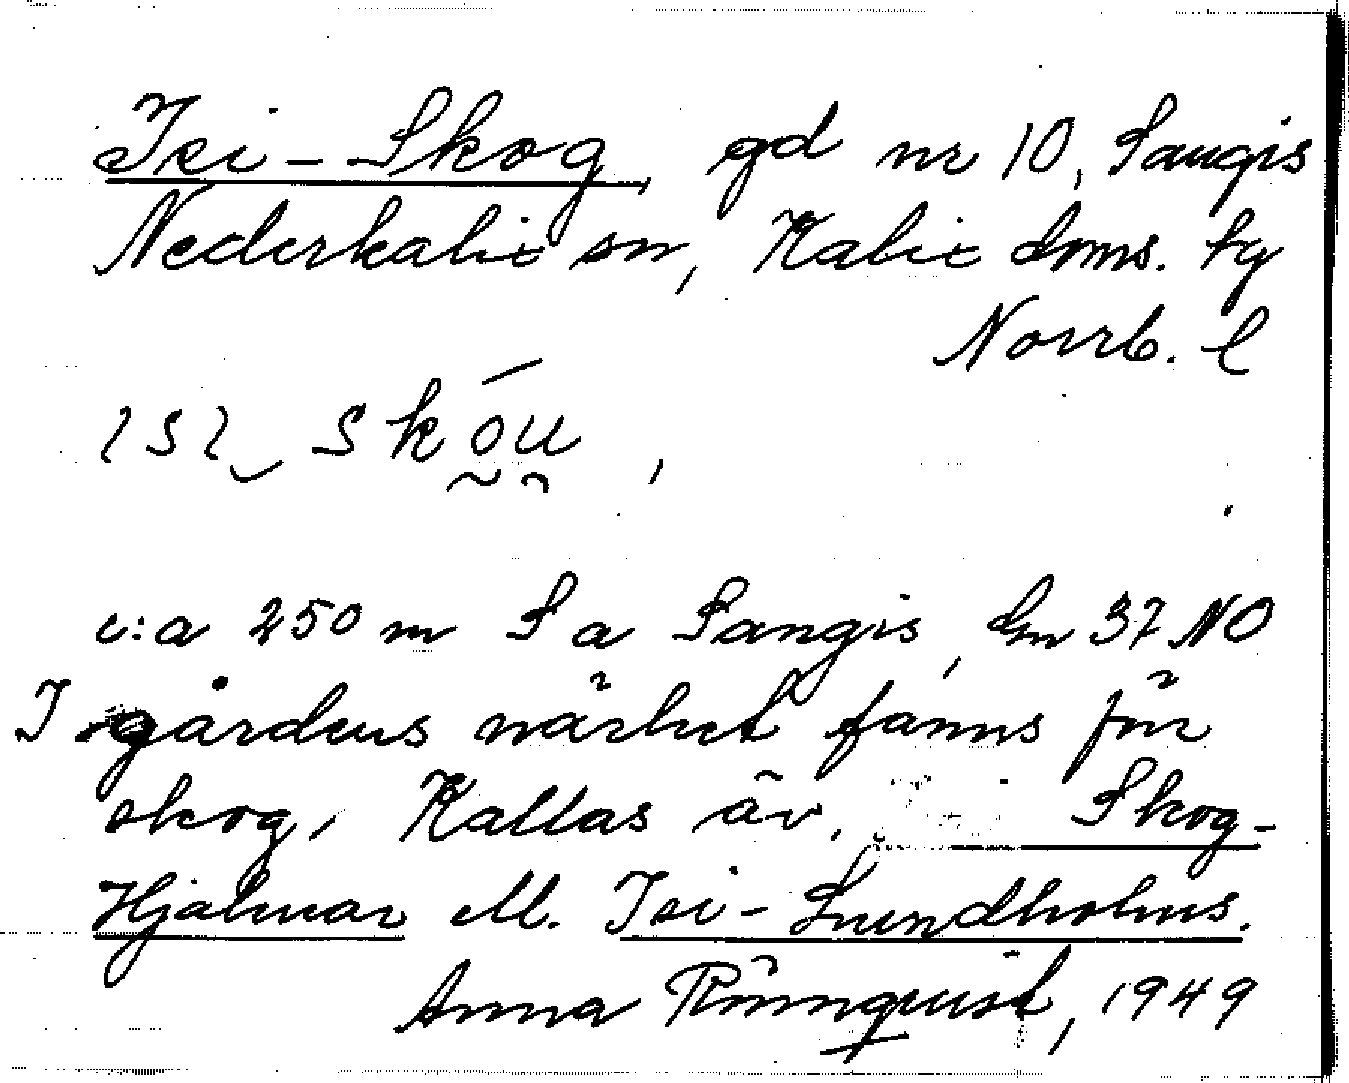 Isi-Skog, gd nr 10, Sangis
Nederkalix sn, Kalix doms. tg
Norrb. l
c:a 250 m S a Sangis, Gm 37 NO
I gårdens närhet fanns förr
skog, Kallas äv. Skog-
Hjalmar el. Isi-Lundholms.
Anna Rönnquist, 1949